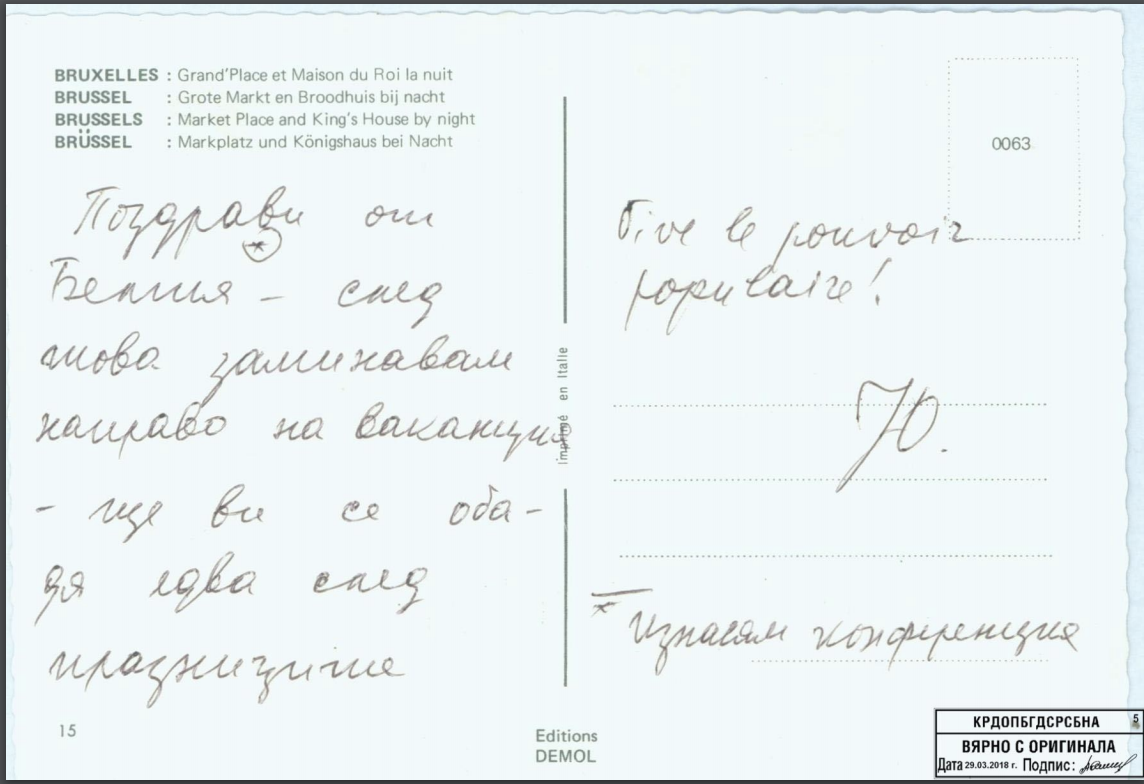 BRUXELLES : Grand'Place et Maison du Roi la nuit
BRUSSEL : Grote Markt en Broodhuis bij nacht
BRUSSELS : Market Place and King's House by night
BRÜSSEL : Markplatz und Königshaus bei Nacht
Поздрави от
*
Белгия – след
това заминавам
направо на ваканция
- ще ви се оба-
дя едва след
празниците
15
Imprimé en Italie
Editions
DEMOL
0063
Vive le pouvoir
populaire!
Ю.
* Изнасям конференция
КРДОПБГДСРСБНА 5
ВЯРНО С ОРИГИНАЛА
Дата 29.03.2018 г. Подпис: